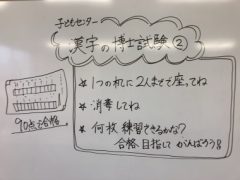 子どもセンター
漢字の博士試験②
★ 1つの机に2人まで座ってね
★ 消毒してね
★ 何枚練習できるかな?
合格目指してがんばろう!!
90点で合格